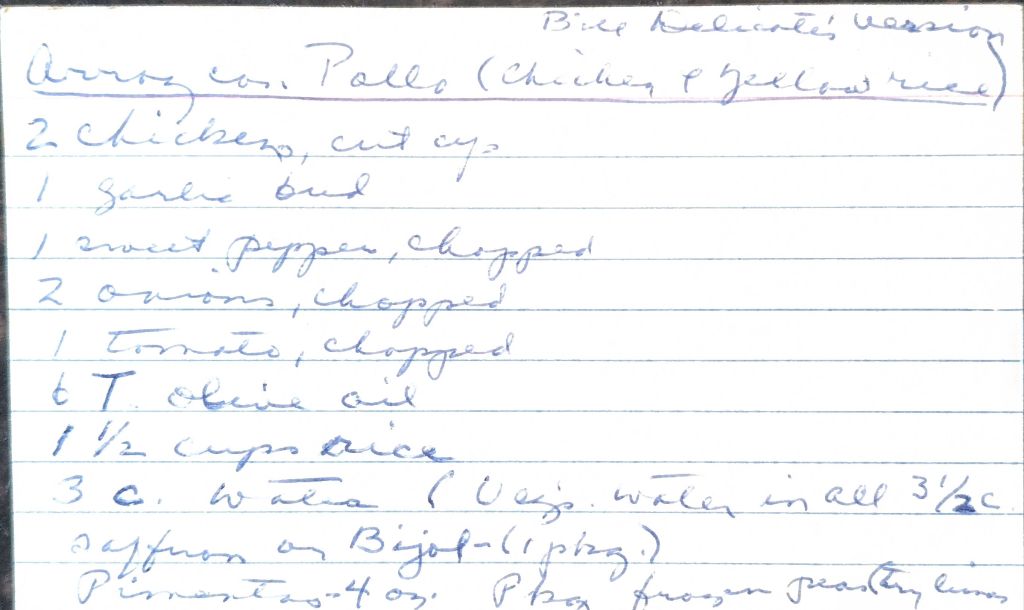 Bill Delicate's version
Arroz con Pollo (Chicken & Yellow rice)
2 chickens, cut up
1 garlic bud
1 sweet pepper, chopped
2 onions, chopped
1 tomato, chopped
6 T. olive oil
1 1/2 cups rice
3 c. water ( Veg. water in all 3 1/2 c.
saffron or Bijol - (1 pkg.)
Pimentos - 4 oz. Pkg frozen peas